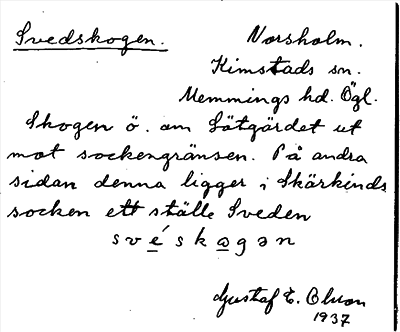 Svedskogen.
Norsholm.
Kimstads sn.
Memmings hd. Ögl.
Skogen ö. om Sötgärdet ut
mot sockengränsen. På andra
sidan denna ligger i Skärkinds
socken ett ställe Sveden
své̱sko̱gən
Gustaf E. Olsson
1937